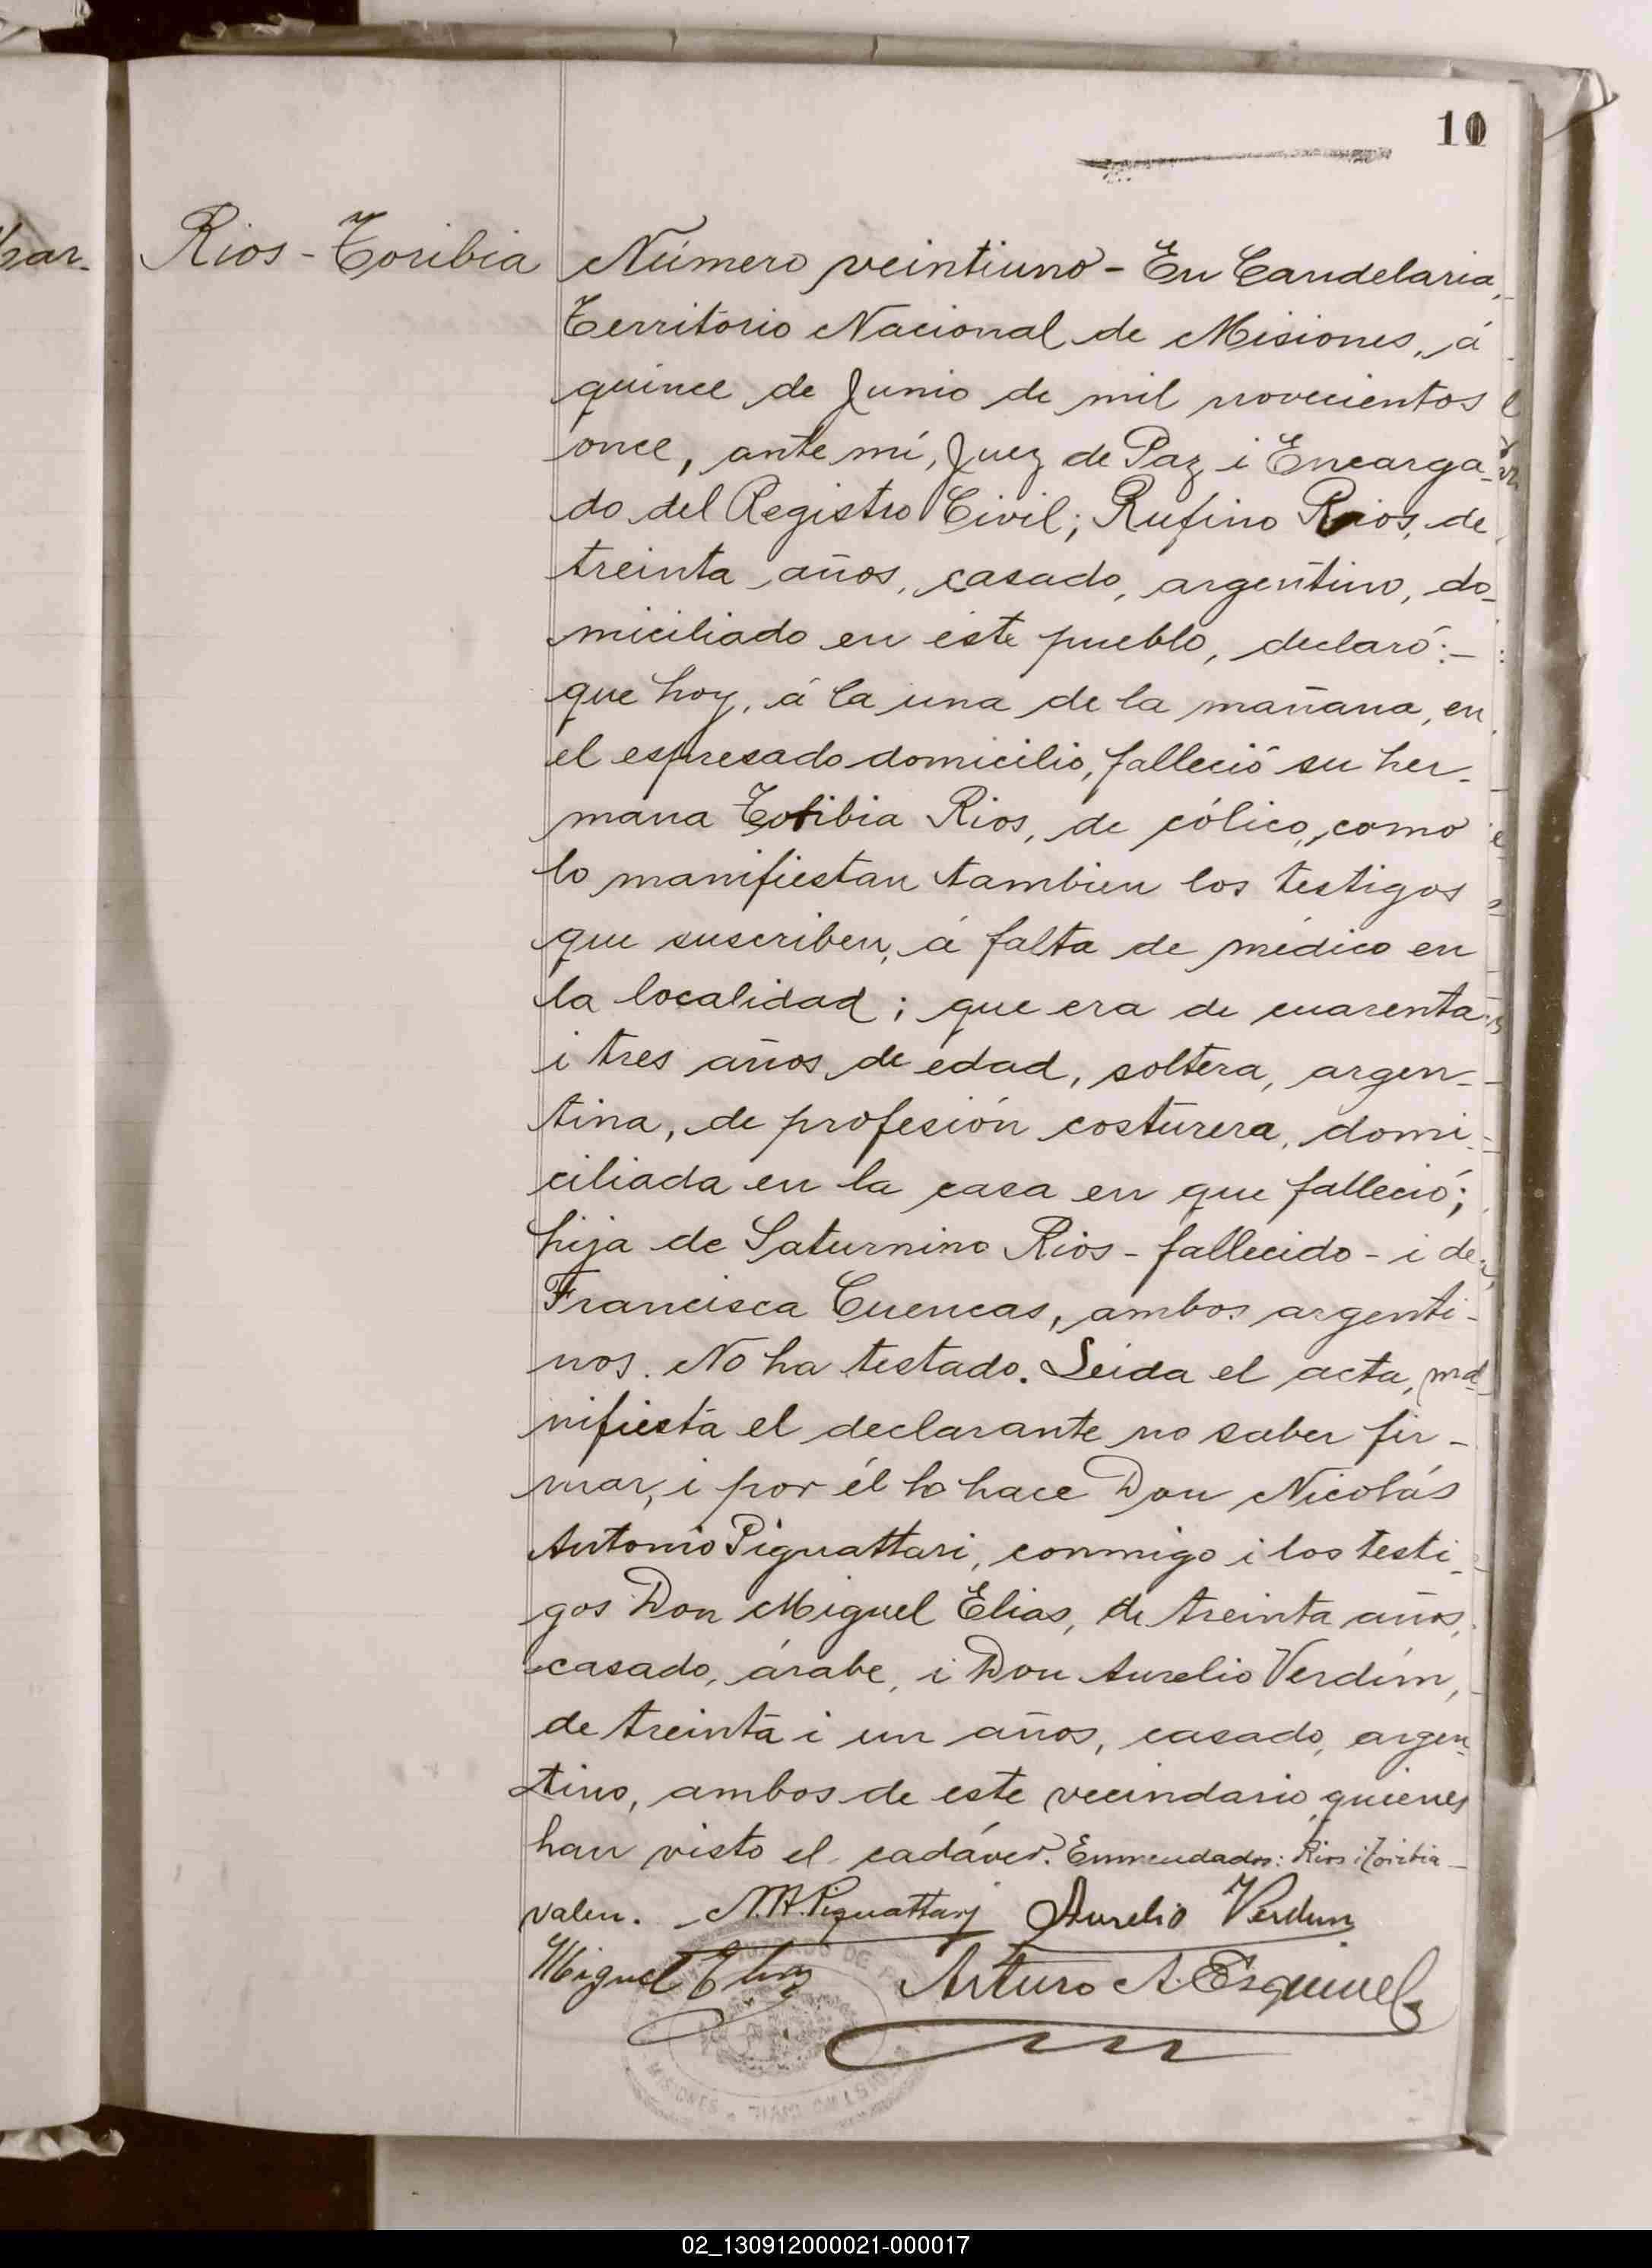 10
Rios - Toribia
Número veintiuno - En Candelaria,
Territorio Nacional de Misiones, á
quince de Junio de mil novecientos
once, ante mí, Juez de Paz i Encarga-
do del Registro Civil; Rufino Rios, de
treinta años, casado, argentino, do-
miciliado en este pueblo, declaró:-
que hoy, á la una de la mañana, en
el espresado domicilio, falleció su her-
mana Toribia Rios, de cólico, como
lo manifiestan tambien los testigos
que suscriben, á falta de médico en
la localidad; que era de cuarenta
i tres años de edad, soltera, argen-
tina, de profesión costurera, domi-
ciliada en la casa en que falleció;
hija de Saturnino Rios - fallecido - i de
Francisca Cuencas, ambos argenti-
nos. No ha testado. Leida el acta, ma-
nifiesta el declarante no saber fir-
mar, i por él lo hace Don Nicolás
Antonio Piguattari, conmigo i los testi-
gos Don Miguel Elias, de treinta años,
casado, árabe, i Don Aurelio Verdún,
de treinta i un años, casado, argen-
tino, ambos de este vecindario, quienes
han visto el cadáver. Enmendados: Rios i Toribia -
valen. - N. A. Piguattarj Aurelio Verdun
Miguel Elias Arturo A. Esquivel
JUZGADO DE
MISIONES
02_130912000021-000017